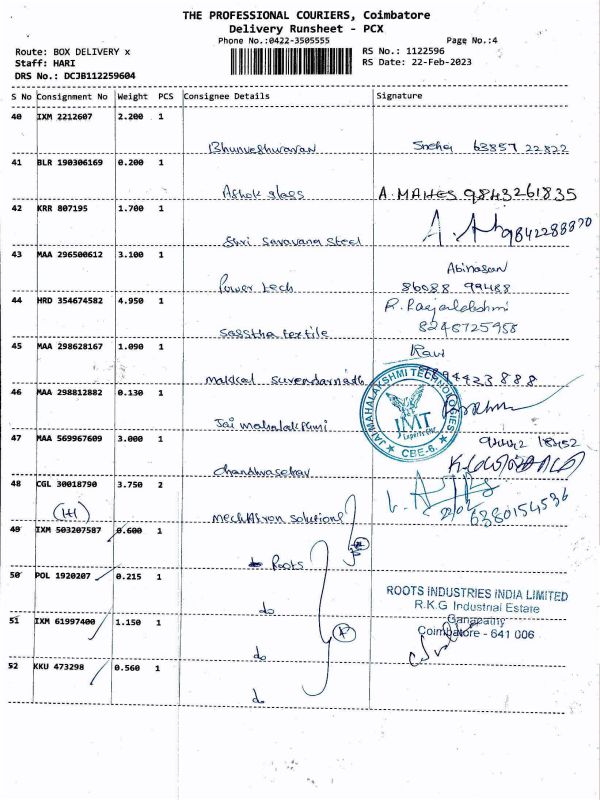 THE PROFESSIONAL COURIERS, Coimbatore
Delivery Runsheet - PCX
Phone No.:0422-3505555
Page No.:4
Route: BOX DELIVERY x
RS No.: 1122596
Staff: HARI
RS Date: 22-Feb-2023
DRS No.: DCJB112259604
S No Consignment No Weight PCS Consignee Details Signature
40 IXM 2212607 2.200 1
Bhuvneshwaran Sneha 63857 22822
41 BLR 190306169 0.200 1
Ashok glass A. MAHES 9843261835
42 KRR 807195 1.700 1
Shri Saravana Steel 9842288870
43 MAA 296500612 3.100 1
Abinasan
Power tech 86088 99488
44 HRD 354674582 4.950 1
R. Raejalakshmi
Sasstha textile 8248725958
45 MAA 298628167 1.090 1
Ravi
makkal 94423888
46 MAA 298812882 0.130 1
JAI MAHALAKSHMI TECHNOLOGIES
JMT
CBE-6.
Jai mahalakshmi
47 MAA 569967609 3.000 1
Chandhrasekar
48 CGL 30018790 3.750 2
(1+1)
Mechatron Solutions 6380154536
49 IXM 503207587 0.600 1
Roots
50 POL 1920207 0.215 1
do
ROOTS INDUSTRIES INDIA LIMITED
R.K.G Industrial Estate
51 IXM 61997400 1.150 1
Ganapathy
Coimbatore - 641 006
do
52 KKU 473298 0.560 1
do